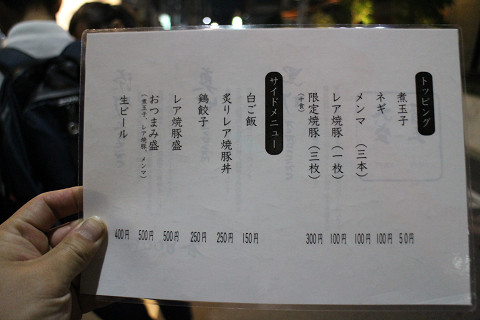 トッピング
煮玉子 50円
ネギ 100円
メンマ（三本） 100円
レア焼豚（一枚） 100円
限定焼豚（三枚） 300円
（十食）
サイドメニュー
白ご飯 150円
炙りレア焼豚丼 250円
鶏餃子 250円
レア焼豚盛 500円
おつまみ盛 500円
（煮玉子、レア焼豚、メンマ）
生ビール 400円